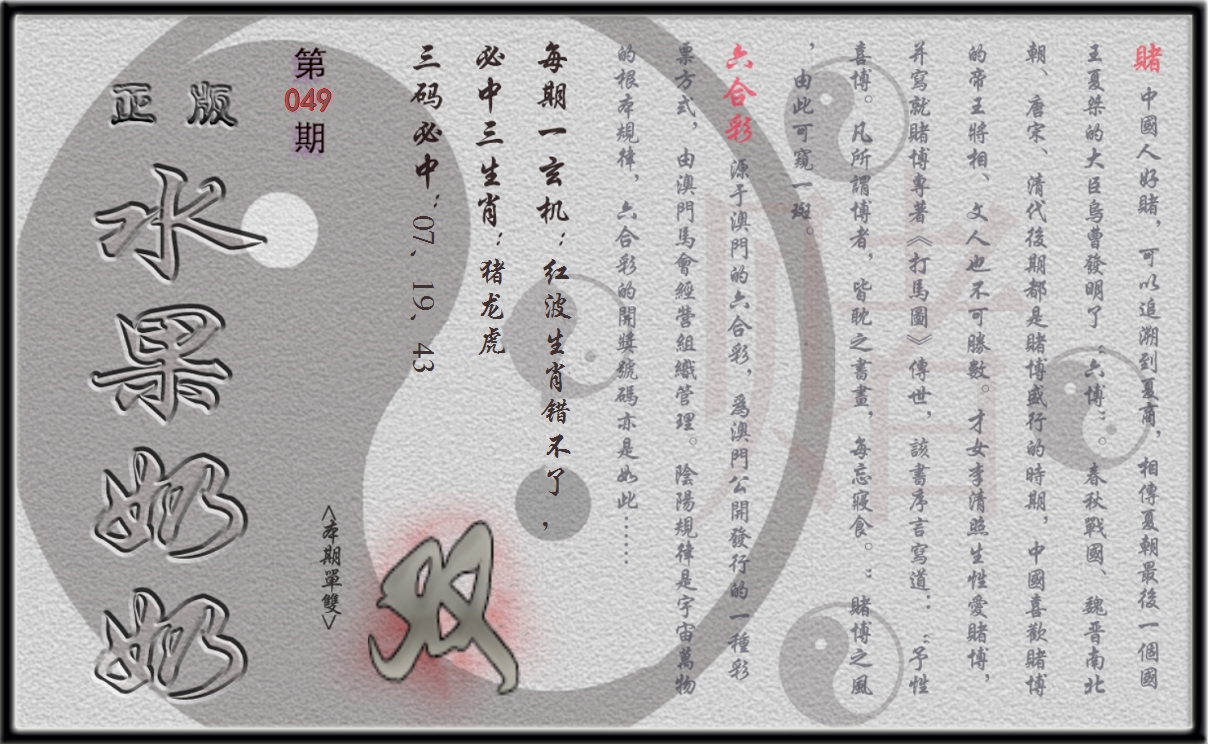 賭 中國人好賭，可以追溯到夏商，相傳夏朝最後一個國
王夏桀的大臣烏曹發明了：六博：。春秋戰國、魏晉南北
朝、唐宋、清代後期都是賭博盛行的時期，中國喜歡賭博
的帝王將相、文人也不可勝數。才女李清照生性愛賭博，
并寫就賭博專著《打馬圖》傳世，該書序言寫道：：予性
喜博。凡所謂博者，皆耽之書畫，每忘寢食。：賭博之風
，由此可窺一斑。
六合彩 源于澳門的六合彩，為澳門公開發行的一種彩
票方式，由澳門馬會經營組織管理。陰陽規律是宇宙萬物
的根本規律，六合彩的開獎號碼亦是如此……
每期一玄机：红波生肖错不了，
必中三生肖：猪龙虎
三码必中：07、19、43
双
<本期單雙>
第
049
期
正版
水果奶奶
赌